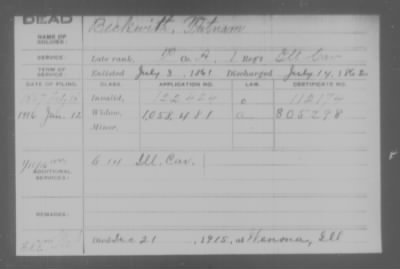 DEAD
NAME OF SOLDIER: Beckwith, Putnam
SERVICE: Late rank, P Co. A, 1 Reg't Ill Cav
TERM OF SERVICE: Enlisted July 3, 1861 Discharged July 14, 1862
DATE OF FILING. CLASS. APPLICATION NO. LAW. CERTIFICATE NO.
Invalid, 122424 112174
1916 Jan. 12 Widow, 1,058,481 805298
Minor,
ADDITIONAL SERVICES: G 14 Ill. Cav.
REMARKS:
Died Dec 21, 1915, at Wenona, Ill